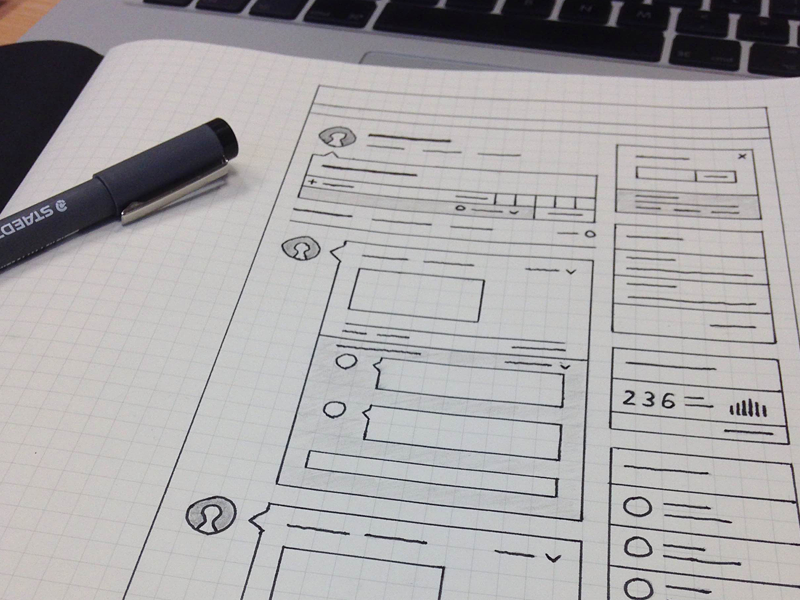 STAEDT
x
+
236